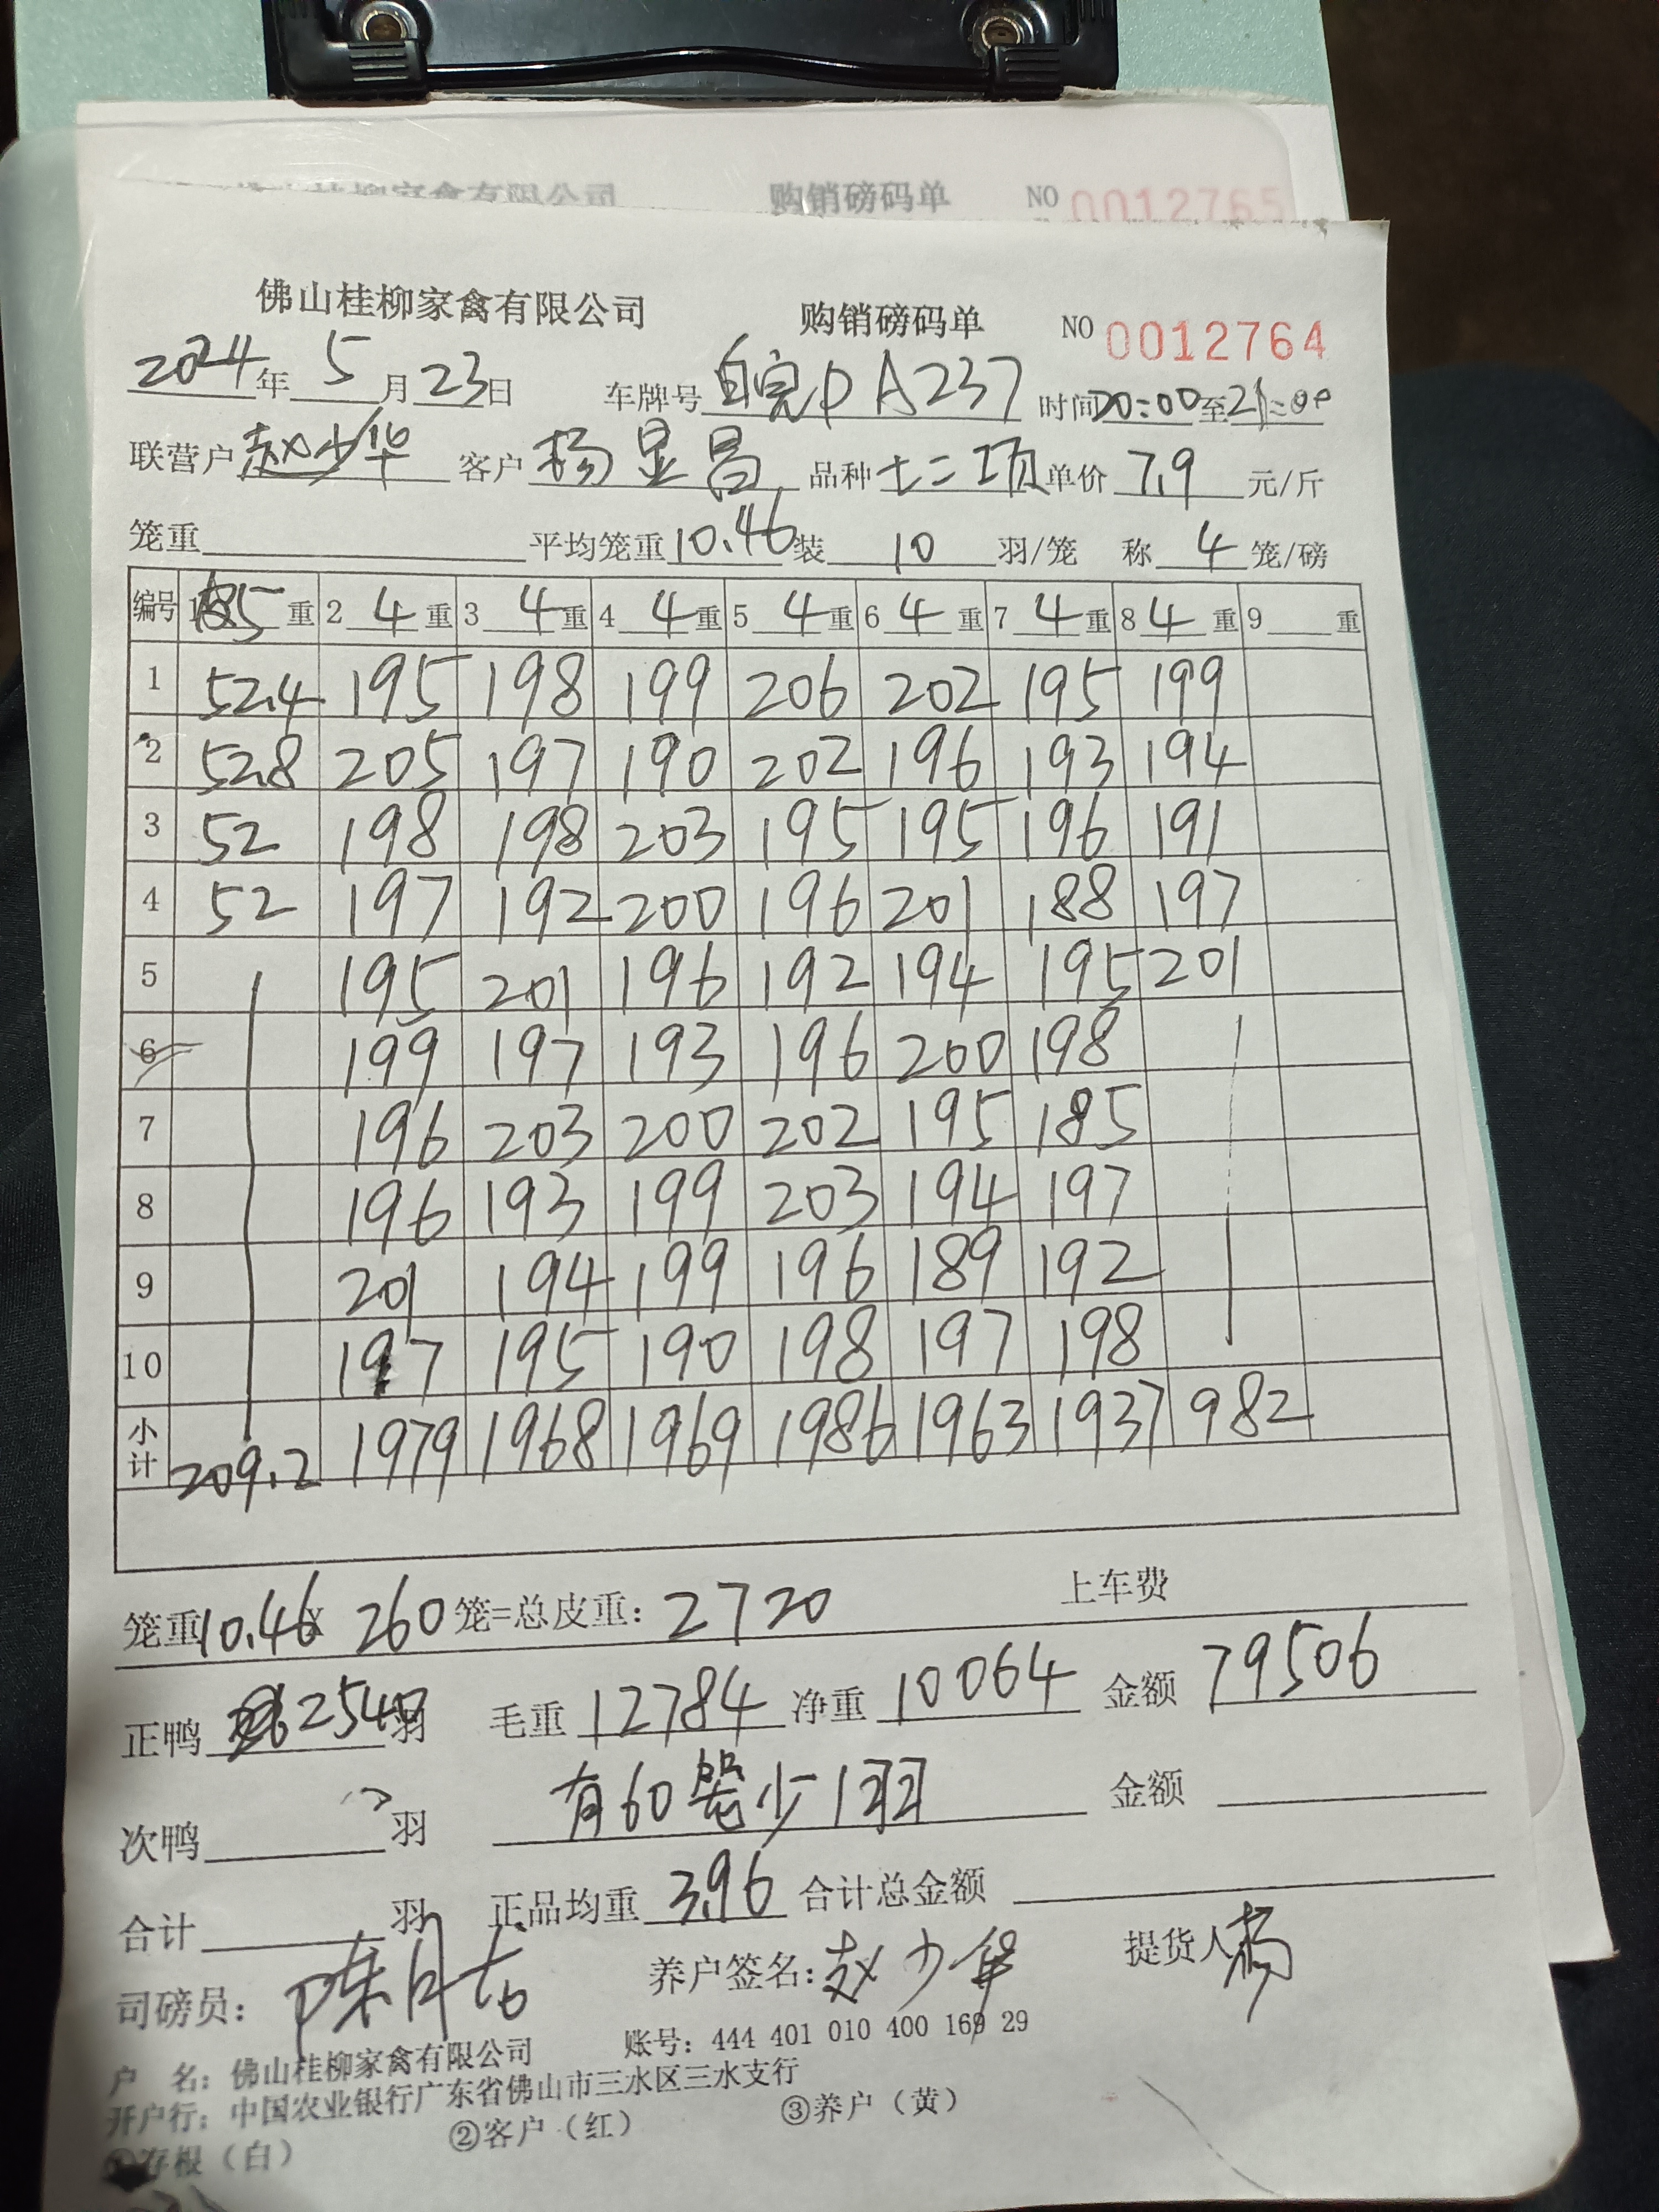 购销磅码单 NO 0012765
佛山桂柳家禽有限公司 购销磅码单 NO 0012764
2024年 5 月 23 日 车牌号 皖P A237 时间 20:00 至 21:00
联营户 赵少华 客户 杨显昌 品种 七二项 单价 7.9 元/斤
笼重 平均笼重 10.46 装 10 羽/笼 称 4 笼/磅
编号 1 5 重 2 4 重 3 4 重 4 4 重 5 4 重 6 4 重 7 4 重 8 4 重 9 重
1 52.4 195 198 199 206 202 195 199
2 52.8 205 197 190 202 196 193 194
3 52 198 198 203 195 195 196 191
4 52 197 192 200 196 201 188 197
5 195 201 196 192 194 195 201
6 199 197 193 196 200 198
7 196 203 200 202 195 185
8 196 193 199 203 194 197
9 201 194 199 196 189 192
10 197 195 190 198 197 198
小计 209.2 1979 1968 1969 1986 1963 1937 982
笼重 10.46 x 260 笼=总皮重: 2720 上车费
正鸭 2540 羽 毛重 12784 净重 10064 金额 79506
次鸭 羽 有60笼少1羽 金额
合计 羽 正品均重 3.96 合计总金额
司磅员: 养户签名: 赵少华 提货人 杨
户 名: 佛山桂柳家禽有限公司 账号: 444 401 010 400 169 29
开户行: 中国农业银行广东省佛山市三水区三水支行
①存根(白) ②客户(红) ③养户(黄)